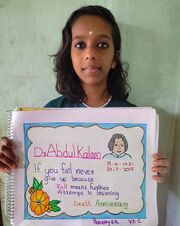 Dr Abdul Kalam
15-10-1931
27-7-2015
If you fail never
give up because
Fail means Further
Attempt to learning
Death Anniversary
VII-C